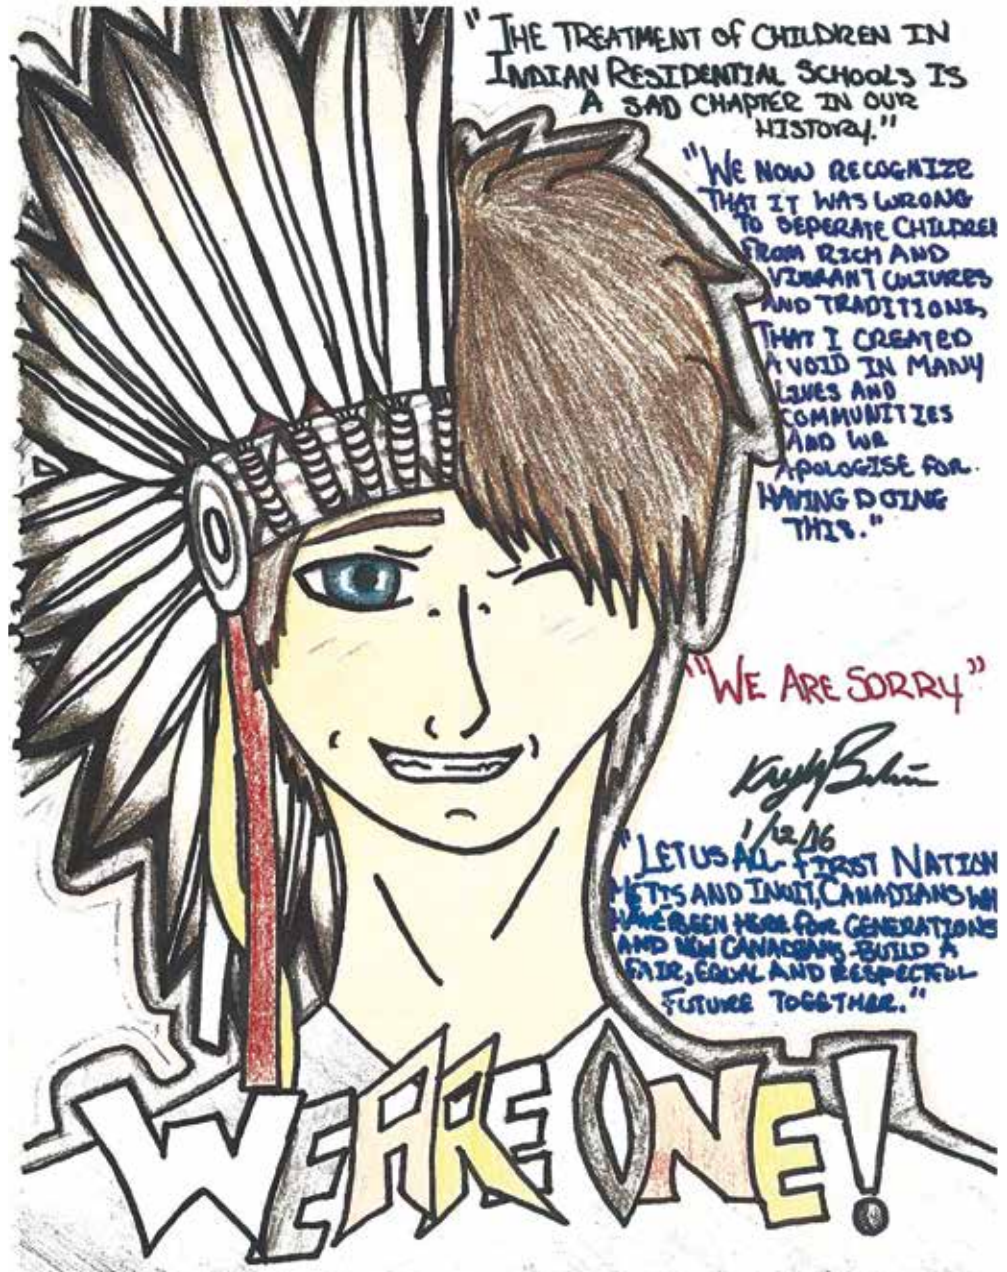 "THE TREATMENT OF CHILDREN IN
INDIAN RESIDENTIAL SCHOOLS IS
A SAD CHAPTER IN OUR
HISTORY."
"WE NOW RECOGNIZE
THAT IT WAS WRONG
TO SEPERATE CHILDREN
FROM RICH AND
VIBRANT CULTURES
AND TRADITIONS,
THAT I CREATED
A VOID IN MANY
LIVES AND
COMMUNITIES
AND WE
APOLOGISE FOR
HAVING DOING
THIS."
"WE ARE SORRY"
1/12/16
"LET US ALL- FIRST NATION
METIS AND INUIT, CANADIANS WH
HAVE BEEN HERE FOR GENERATIONS
AND NEW CANADIANS-BUILD A
FAIR, EQUAL AND RESPECTFUL
FUTURE TOGETHER."
WE ARE ONE!